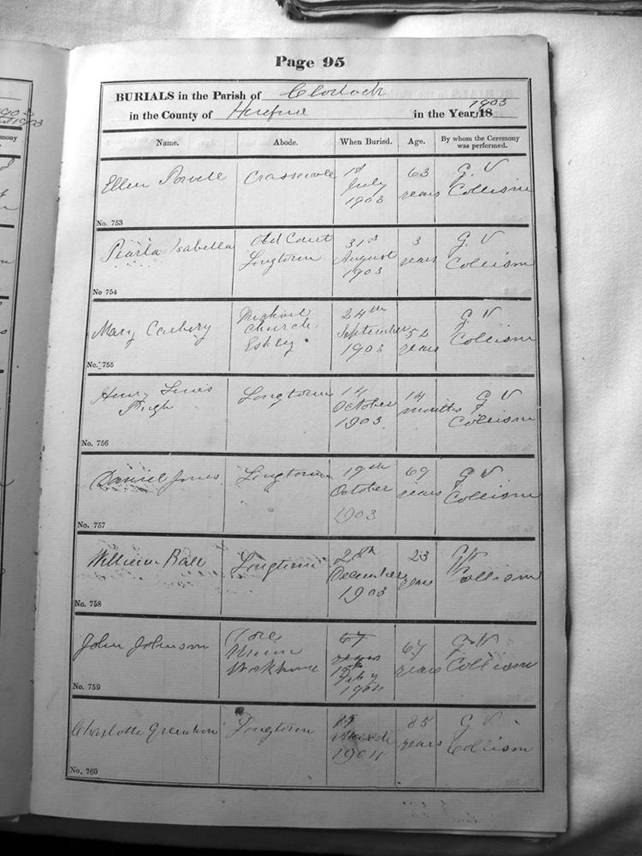 Page 95
BURIALS in the Parish of Clodock
in the County of Hereford in the Year 18 1903
Name. Abode. When Buried. Age. By whom the Ceremony was performed.
Ellen Powell Craswall 1st July 1903 63 years G. V Collison
No. 753
Pearla Isabella Old Court Longtown 31st August 1903 3 years G. V Collison
No 754
Mary Michael church Eskley 24th September 1903 52 years G V Collison
No. 755
Henry Lewis Pugh Longtown 14 October 1903 14 months G V Collison
No. 756
Daniel Jones Longtown 19th October 1903 69 years G V Collison
No. 757
William Ball Longtown 28th December 1903 23 years G V Collison
No. 758
John Johnson Workhouse 67 years 1904 67 years G. V Collison
No. 759
Charlotte Longtown March 1904 85 years G V Collison
No. 760